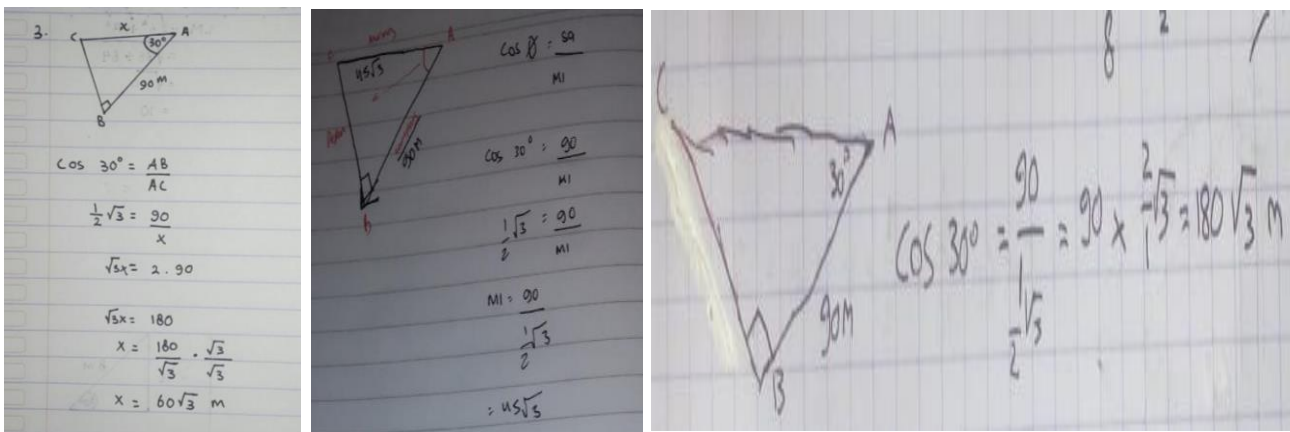 3.
x
C
A
30°
90 M
B
cos 30° = AB
AC
1/2 √3 = 90
x
√3x = 2 . 90
√3x = 180
x = 180 . √3
√3 √3
x = 60√3 m
A
45√3
90M
B
Cos β = sa
MI
Cos 30° = 90
MI
1/2 √3 = 90
MI
MI = 90
1/2 √3
= 45√3
8 2
C
A
30°
90M
B
Cos 30° = 90 / 1/2 √3 = 90 x 2/1 √3 = 180 √3 m